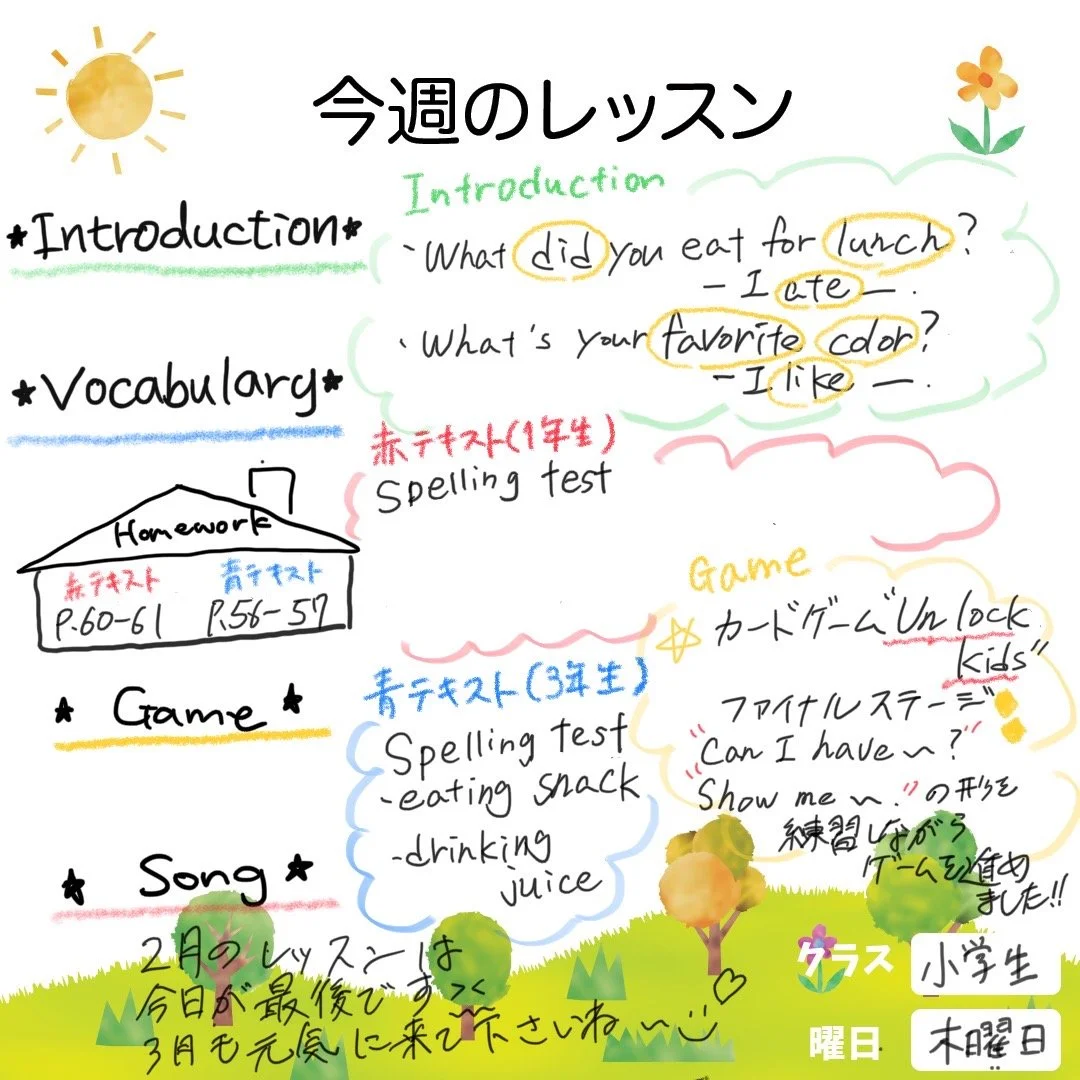 今週のレッスン
★Introduction★
Introduction
・What did you eat for lunch?
- I ate ―.
・What's your favorite color?
- I like ―.
★Vocabulary★
赤テキスト(1年生)
Spelling test
Homework
赤テキスト 青テキスト
P.60-61 P.56-57
青テキスト(3年生)
Spelling test
-eating snack
-drinking
juice
★ Game ★
Game
☆ カードゲーム"Unlock
kids"
ファイナルステージ
"Can I have ~?"
"Show me ~." の形を
練習しながら
ゲームを進め
ました!!
★ Song ★
2月のレッスンは
今日が最後です><
3月も元気に来て下さいね~
クラス 小学生
曜日 木曜日